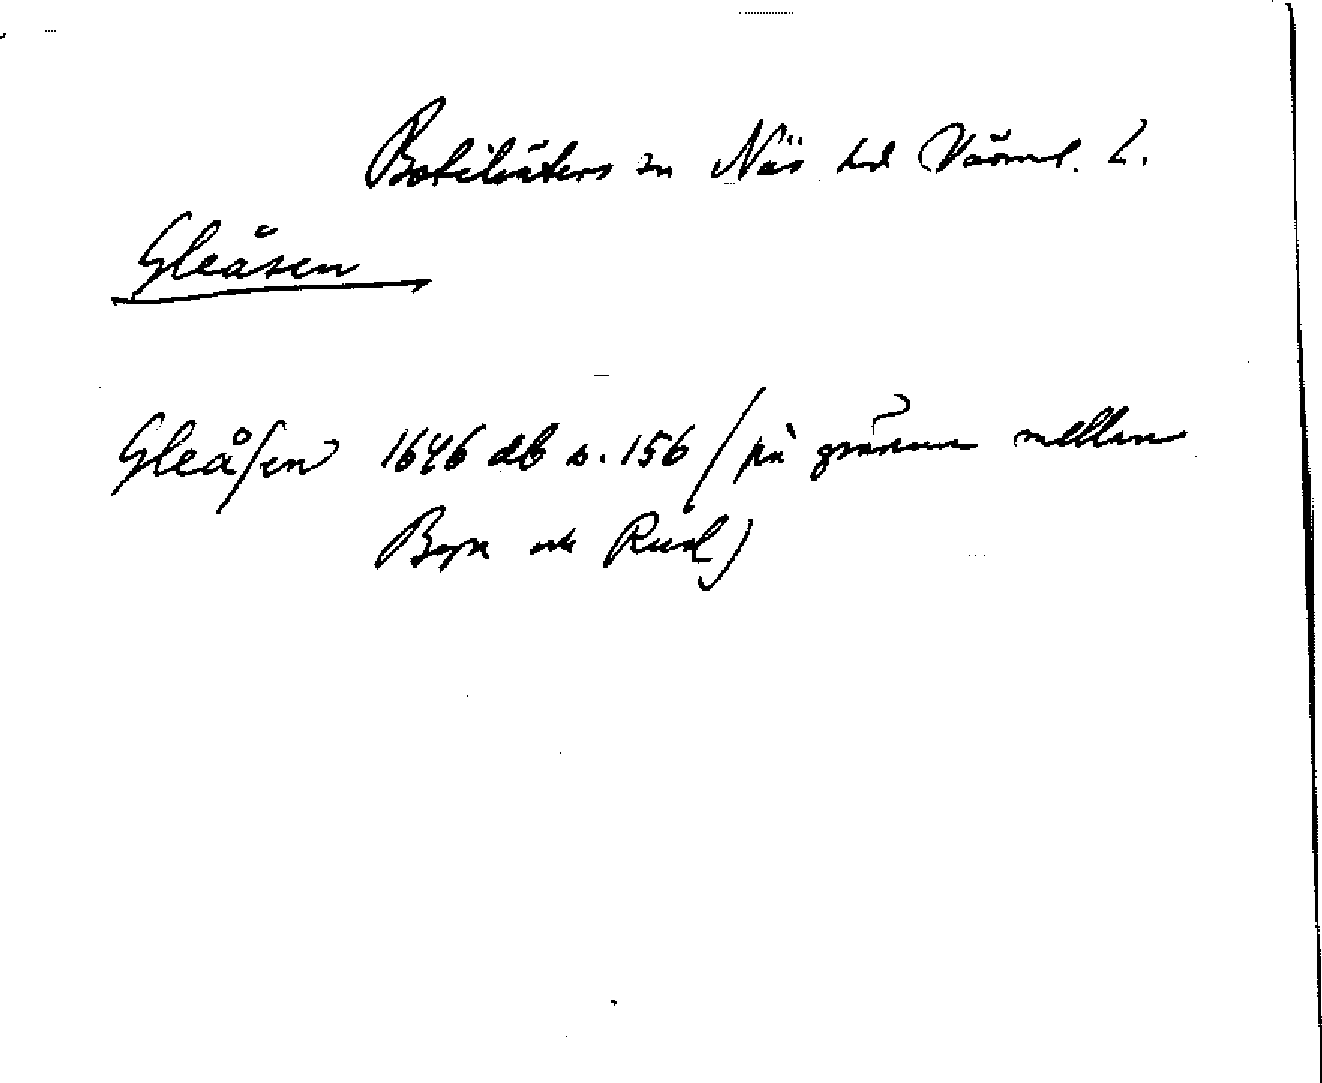 Botilsäters sn Näs hd Värml. L.
Gleåsen
Gleåſen 1646 db s. 156 (på gränsen mellan
Byn och Rud)